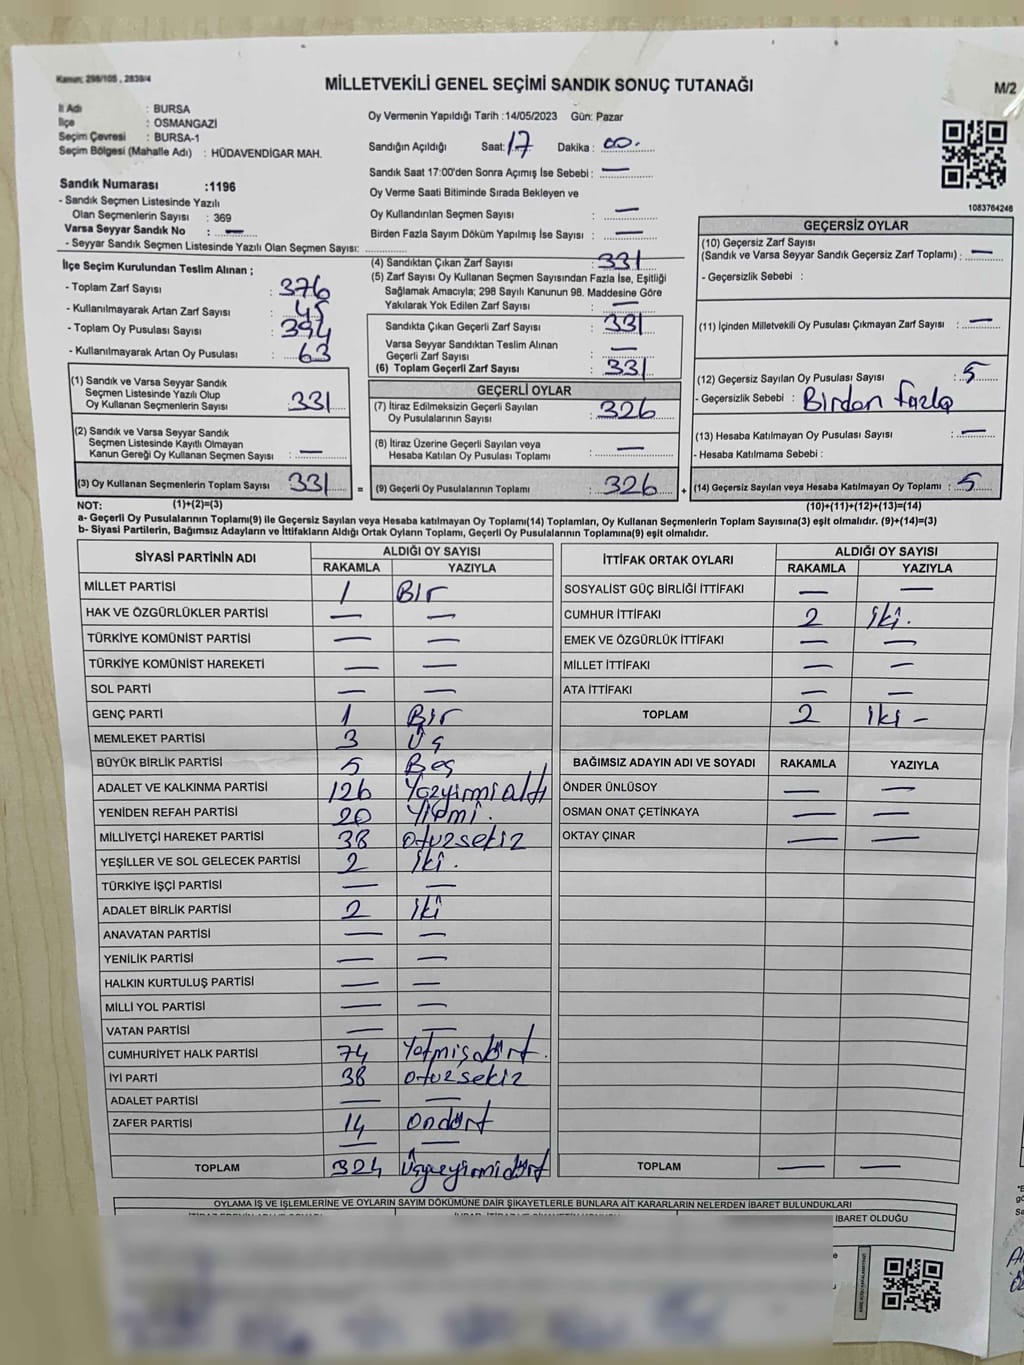 Kanun; 298/105 , 2839/4
MİLLETVEKİLİ GENEL SEÇİMİ SANDIK SONUÇ TUTANAĞI
M/2
İl Adı : BURSA
İlçe : OSMANGAZİ
Seçim Çevresi : BURSA-1
Seçim Bölgesi (Mahalle Adı) : HÜDAVENDİGAR MAH.
Oy Vermenin Yapıldığı Tarih :14/05/2023 Gün: Pazar
Sandığın Açıldığı Saat: 17 Dakika : 00.
Sandık Saat 17:00'den Sonra Açımış İse Sebebi : —
Oy Verme Saati Bitiminde Sırada Bekleyen ve
Oy Kullandırılan Seçmen Sayısı : —
Birden Fazla Sayım Döküm Yapılmış İse Sayısı : —
1083764246
Sandık Numarası :1196
- Sandık Seçmen Listesinde Yazılı
Olan Seçmenlerin Sayısı : 369
Varsa Seyyar Sandık No : —
- Seyyar Sandık Seçmen Listesinde Yazılı Olan Seçmen Sayısı:
İlçe Seçim Kurulundan Teslim Alınan ;
- Toplam Zarf Sayısı : 376
- Kullanılmayarak Artan Zarf Sayısı : 45
- Toplam Oy Pusulası Sayısı : 394
- Kullanılmayarak Artan Oy Pusulası : 63
(1) Sandık ve Varsa Seyyar Sandık
Seçmen Listesinde Yazılı Olup
Oy Kullanan Seçmenlerin Sayısı : 331
(2) Sandık ve Varsa Seyyar Sandık
Seçmen Listesinde Kayıtlı Olmayan
Kanun Gereği Oy Kullanan Seçmen Sayısı : —
(3) Oy Kullanan Seçmenlerin Toplam Sayısı : 331 =
(1)+(2)=(3)
(4) Sandıktan Çıkan Zarf Sayısı : 331
(5) Zarf Sayısı Oy Kullanan Seçmen Sayısından Fazla İse, Eşitliği
Sağlamak Amacıyla; 298 Sayılı Kanunun 98. Maddesine Göre
Yakılarak Yok Edilen Zarf Sayısı : —
Sandıkta Çıkan Geçerli Zarf Sayısı : 331
Varsa Seyyar Sandıktan Teslim Alınan
Geçerli Zarf Sayısı : —
(6) Toplam Geçerli Zarf Sayısı : 331
GEÇERLİ OYLAR
(7) İtiraz Edilmeksizin Geçerli Sayılan
Oy Pusulalarının Sayısı : 326
(8) İtiraz Üzerine Geçerli Sayılan veya
Hesaba Katılan Oy Pusulası Toplamı : —
(9) Geçerli Oy Pusulalarının Toplamı : 326 +
GEÇERSİZ OYLAR
(10) Geçersiz Zarf Sayısı
(Sandık ve Varsa Seyyar Sandık Geçersiz Zarf Toplamı) : —
- Geçersizlik Sebebi :
(11) İçinden Milletvekili Oy Pusulası Çıkmayan Zarf Sayısı : —
(12) Geçersiz Sayılan Oy Pusulası Sayısı : 5
- Geçersizlik Sebebi : Birden fazla
(13) Hesaba Katılmayan Oy Pusulası Sayısı : —
- Hesaba Katılmama Sebebi :
(14) Geçersiz Sayılan veya Hesaba Katılmayan Oy Toplamı : 5
(10)+(11)+(12)+(13)=(14)
NOT:
a- Geçerli Oy Pusulalarının Toplamı(9) ile Geçersiz Sayılan veya Hesaba katılmayan Oy Toplamı(14) Toplamları, Oy Kullanan Seçmenlerin Toplam Sayısına(3) eşit olmalıdır. (9)+(14)=(3)
b- Siyasi Partilerin, Bağımsız Adayların ve İttifakların Aldığı Ortak Oyların Toplamı, Geçerli Oy Pusulalarının Toplamına(9) eşit olmalıdır.
SİYASİ PARTİNİN ADI ALDIĞI OY SAYISI
RAKAMLA YAZIYLA
MİLLET PARTİSİ 1 Bir
HAK VE ÖZGÜRLÜKLER PARTİSİ — —
TÜRKİYE KOMÜNİST PARTİSİ — —
TÜRKİYE KOMÜNİST HAREKETİ — —
SOL PARTİ — —
GENÇ PARTİ 1 Bir
MEMLEKET PARTİSİ 3 Üç
BÜYÜK BİRLİK PARTİSİ 5 Beş
ADALET VE KALKINMA PARTİSİ 126 Yüzyirmialtı
YENİDEN REFAH PARTİSİ 20 Yirmi .
MİLLİYETÇİ HAREKET PARTİSİ 38 otuzsekiz
YEŞİLLER VE SOL GELECEK PARTİSİ 2 iki .
TÜRKİYE İŞÇİ PARTİSİ — —
ADALET BİRLİK PARTİSİ 2 iki
ANAVATAN PARTİSİ — —
YENİLİK PARTİSİ — —
HALKIN KURTULUŞ PARTİSİ — —
MİLLİ YOL PARTİSİ — —
VATAN PARTİSİ — —
CUMHURİYET HALK PARTİSİ 74 Yetmişdört .
İYİ PARTİ 38 otuzsekiz
ADALET PARTİSİ — —
ZAFER PARTİSİ 14 ondört
— —
TOPLAM 324 Üçyüzyirmidört
İTTİFAK ORTAK OYLARI ALDIĞI OY SAYISI
RAKAMLA YAZIYLA
SOSYALİST GÜÇ BİRLİĞİ İTTİFAKI — —
CUMHUR İTTİFAKI 2 iki.
EMEK VE ÖZGÜRLÜK İTTİFAKI — —
MİLLET İTTİFAKI — —
ATA İTTİFAKI — —
TOPLAM 2 iki —
BAĞIMSIZ ADAYIN ADI VE SOYADI RAKAMLA YAZIYLA
ÖNDER ÜNLÜSOY — —
OSMAN ONAT ÇETİNKAYA — —
OKTAY ÇINAR — —
TOPLAM — —
OYLAMA İŞ VE İŞLEMLERİNE VE OYLARIN SAYIM DÖKÜMÜNE DAİR ŞİKAYETLERLE BUNLARA AİT KARARLARIN NELERDEN İBARET BULUNDUKLARI
İBARET OLDUĞU